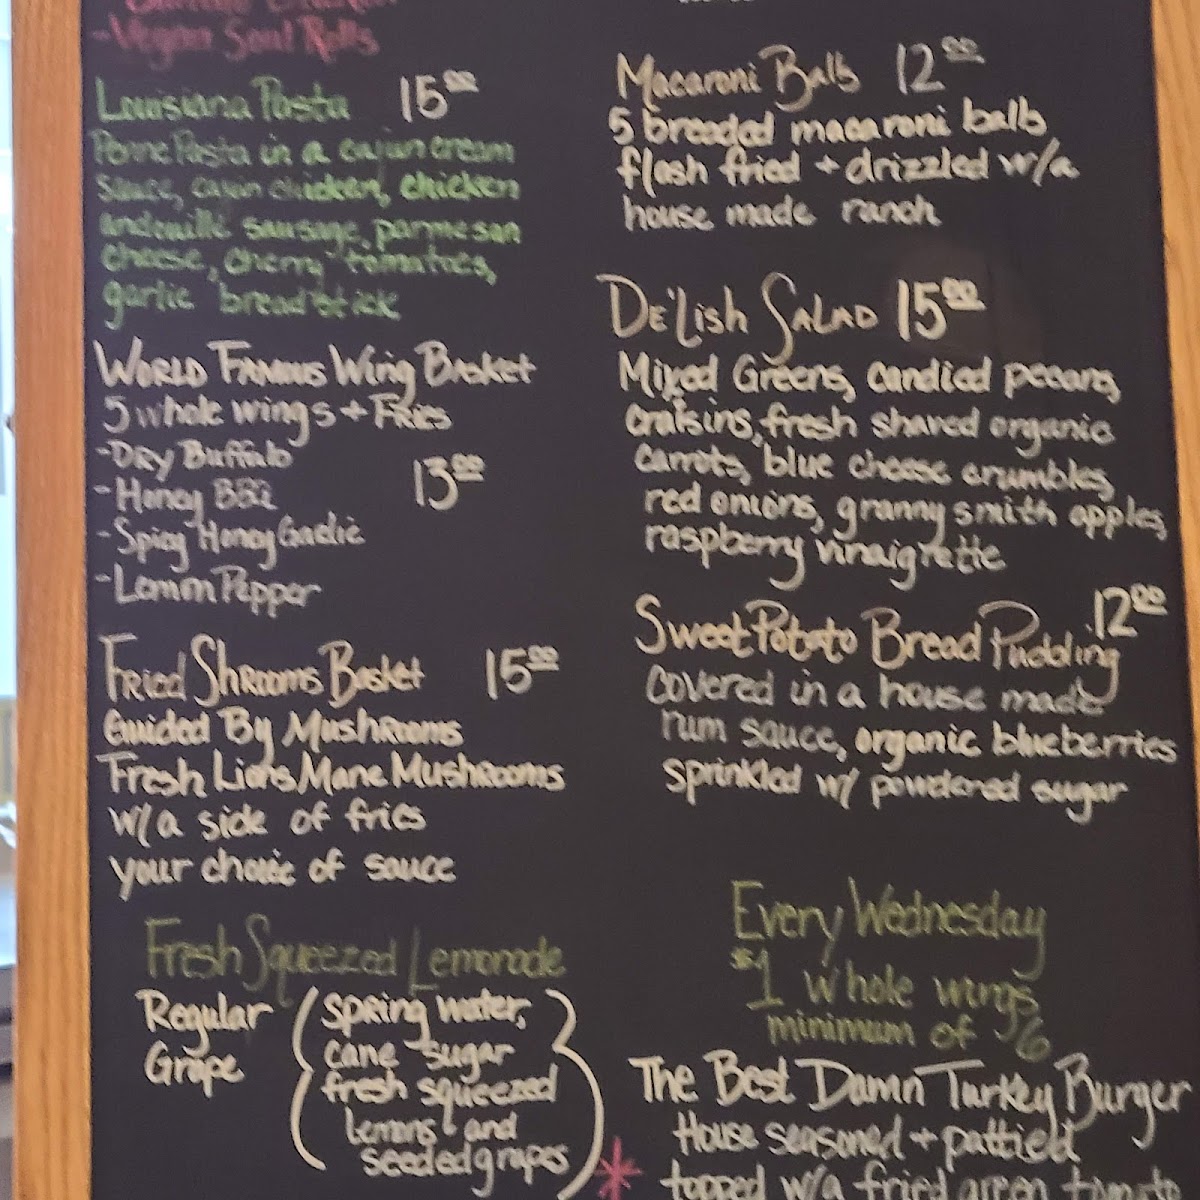 -Vegan Soul Rolls
Louisiana Pasta 15.00
Penne Pasta in a cajun cream
sauce, cajun chicken, chicken
andouille sausage, parmesan
cheese, cherry tomatoes,
garlic breadstick
World Famous Wing Basket
5 whole wings + Fries
-Dry Buffalo
-Honey BBQ 13.00
-Spicy Honey Garlic
-Lemon Pepper
Fried Shrooms Basket 15.00
Guided By Mushrooms
Fresh Lions Mane Mushrooms
w/a side of fries
your choice of sauce
Fresh Squeezed Lemonade
Regular
Grape
(spring water,
cane sugar
fresh squeezed
lemons and
seeded grapes)
Macaroni Balls 12.00
5 breaded macaroni balls
flash fried + drizzled w/a
house made ranch
De'Lish Salad 15.00
Mixed Greens, candied pecans,
craisins, fresh shaved organic
carrots, blue cheese crumbles,
red onions, granny smith apples,
raspberry vinaigrette
Sweet Potato Bread Pudding 12.00
covered in a house made
rum sauce, organic blueberries
sprinkled w/ powdered sugar
Every Wednesday
$1 whole wings
minimum of 6
The Best Damn Turkey Burger
House seasoned + pattied
* topped w/a fried green tomato